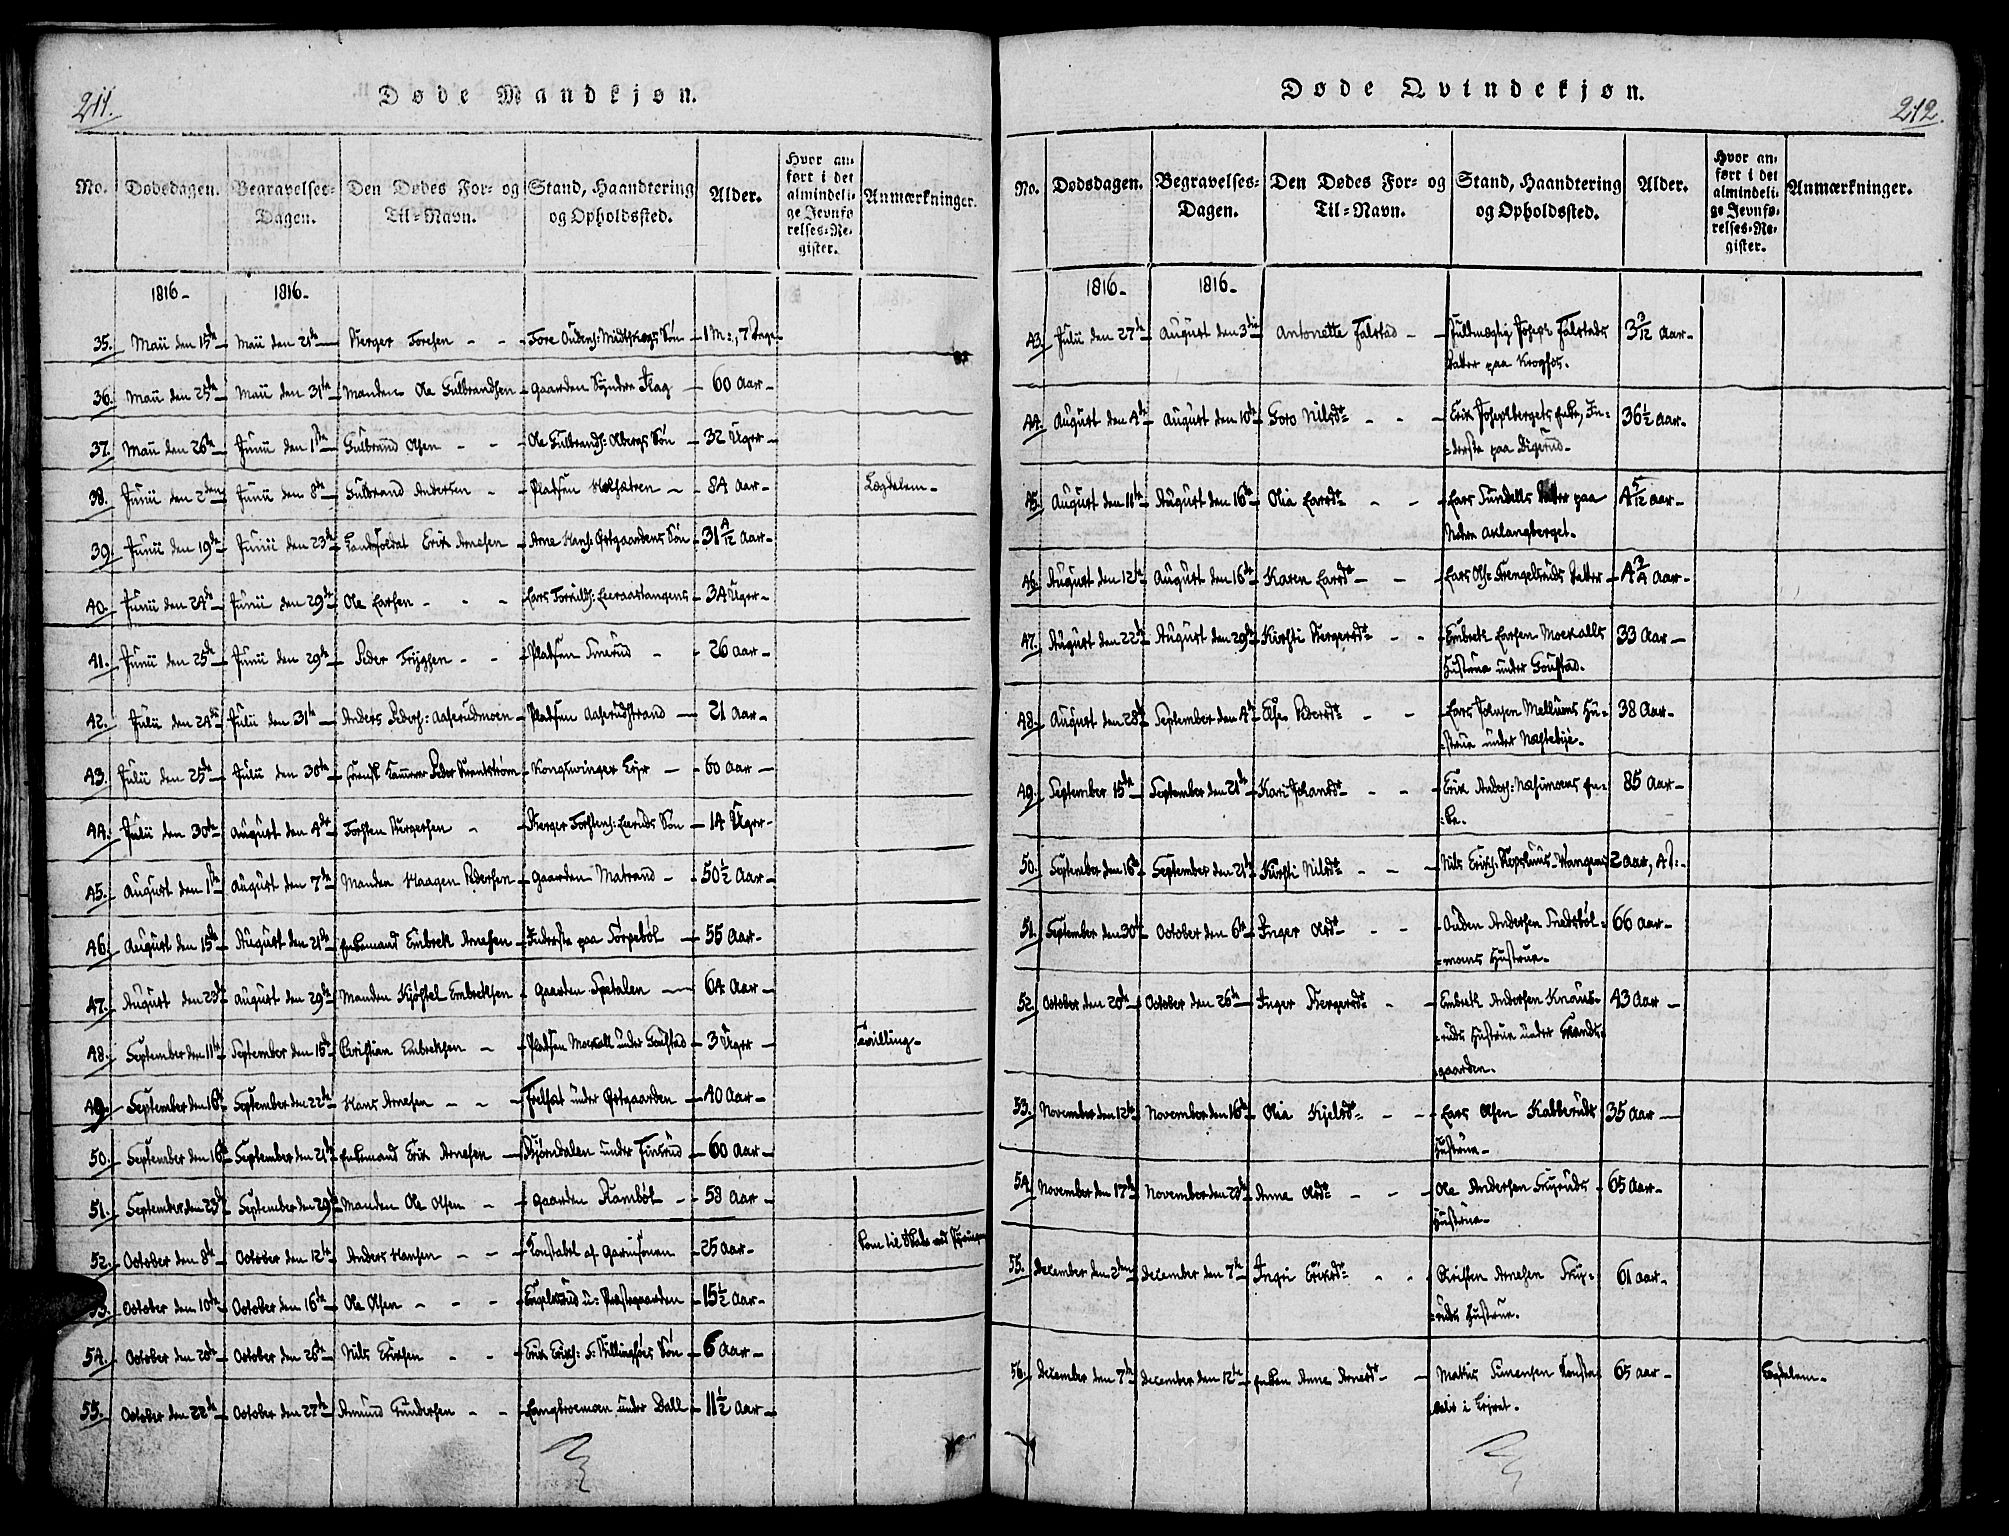 211.
Døde Mandkjøn.
No. Dødsdagen. Begravelses-Dagen. Den Dødes For- og Til-Navn. Stand, Haandtering og Opholdssted. Alder. Hvor anført i det almindelige Jevnførelses-Register. Anmærkninger.
1816 - 1816 -
35. Maii den 15de Maii den 21de Berger Toresen - - Tore Oudens: Midtskogs Søn 1 M:, 7 Dage
36. Maii den 25de Maii den 31te Manden Ole Gulbrandsen Gaarden Søndre Flag 60 Aar
37. Maii den 26de Junii den 1ste Gulbrand Olsen - - Ole Gulbrands: Olbergs Søn 32 Uger
38. Junii den 2den Junii den 8de Gulbrand Andersen - Pladsen Kolsætren 84 Aar Lægdslem
39. Junii den 19de Junii den 23de Landsoldat Erik Arnesen Arne Hans: Østgaardens Søn 31 4/12 Aar
40. Junii den 24de Junii den 29de Ole Larsen - - Lars 34 Uger
41. Junii den 25de Junii den 29de Peder Trygsen - - Pladsen 26 Aar
42. Julii den 24de Julii den 31te Anders Peders: Aaserudmoen Pladsen Aaserudstrand 21 Aar
43. Julii den 25de Julii den 30te Peder Kongsvinger Leir 60 Aar
44. Julii den 30te August den 4de Torsten Bergersen - Berger Torstens: Leeruds Søn 14 Uger
45. August den 1ste August den 7de Manden Haagen Pedersen Gaarden Matrand 50 1/2 Aar
46. August den 15de August den 21de Enkemand Embrek Arnesen Inderste paa Sørgebøl 55 Aar
47. August den 23de August den 29de Manden Kjøstel Embreksen Gaarden Spetalen 64 Aar
48. September den 11te September den 15de Christian Embreksen - Pladsen Moekall under Goustad 3 Uger Tvilling
49. September den 16de September den 22de Hans Arnesen - - under Østgaarden 40 Aar
50. September den 16de September den 21de Enkemand Erik Arnesen Bjørndalen under Finsrud 60 Aar
51. September den 23de September den 29de Manden Ole Olsen - Gaarden Rambøl 58 Aar
52. October den 8de October den 12te Anders Hansen - - Konstabel af Garnisonen 25 Aar kom til Skade ved
53. October den 10de October den 16de Ole Olsen - - - Engelsrud u: Præstegaarden 15 1/2 Aar
54. October den 20de October den 26de Nils Eriksen - - Erik Eriks: S: Skillingsøes Søn 6 Aar
55. October den 22de October den 27de Amund Gundersen - - Langbroemoen under Dall 11 1/2 Aar
212.
Døde Qvindekjøn.
No. Dødsdagen. Begravelses-Dagen. Den Dødes For- og Til-Navn. Stand, Haandtering og Opholdssted. Alder. Hvor anført i det almindelige Jevnførelses-Register. Anmærkninger.
1816 - 1816 -
43. Julii den 27de August den 3die Antonette Falstad - Fuldmægtig Joseph Falstads 3 3/12 Aar
Datter paa Krogfos.
44. August den 4de August den 10de Goro Nilsdtr - - Erik Josephbergets Enke, In- 36 1/2 Aar
=derste paa Digerud
45. August den 11te August den 16de Olia Larsdtr - - Lars Sundells Datter paa 4 5/12 Aar
Nedre Aklangberget.
46. August den 12te August den 16de Karen Larsdtr - - Lars Ols: Frengelsruds Datter 4 3/4 Aar
47. August den 22de August den 29de Kirsti Bergersdtr - - Embrek Larsen Moekalls 33 Aar
Hustrue under Goustad.
48. August den 28de September den 4de Else Pedersdtr - - Lars Johnsen Mellums Hu- 38 Aar
=strue under Næstebye.
49. September 15de September den 21de Kari Johansdtr - - Erik Anders: Næsimoens En- 85 Aar
=ke.
50. September den 16de September den 21de Kirsti Nilsdtr - - Nils Eriks: 2 Aar,
51. September den 30te October den 6te Inger Olsdtr - - Ouden Andersen Snedsbøl- 66 Aar
=moens Hustrue
52. October den 20de October den 26de Inger Bergersdtr - Embrek Andersen Knaus- 43 Aar
=ruds Hustrue under Strands-
gaarden.
53. November den 12te November den 16de Olia Kjelsdtr - - Lars Olsen Kabberuds 35 Aar
Hustrue
54. November den 17de November den 23de Anna Olsdtr - - Ole Andersen Fryruds 65 Aar
Hustrue
55. December den 2den December den 7de Ingri Eriksdtr - - Christen Arnesen Fryr- 61 Aar
=ruds Hustrue.
56. December den 7de December den 12te Enken Anne Arnesdtr - Mathis Simensen Konsta- 65 Aar Lægdslem
bels i Leiret.